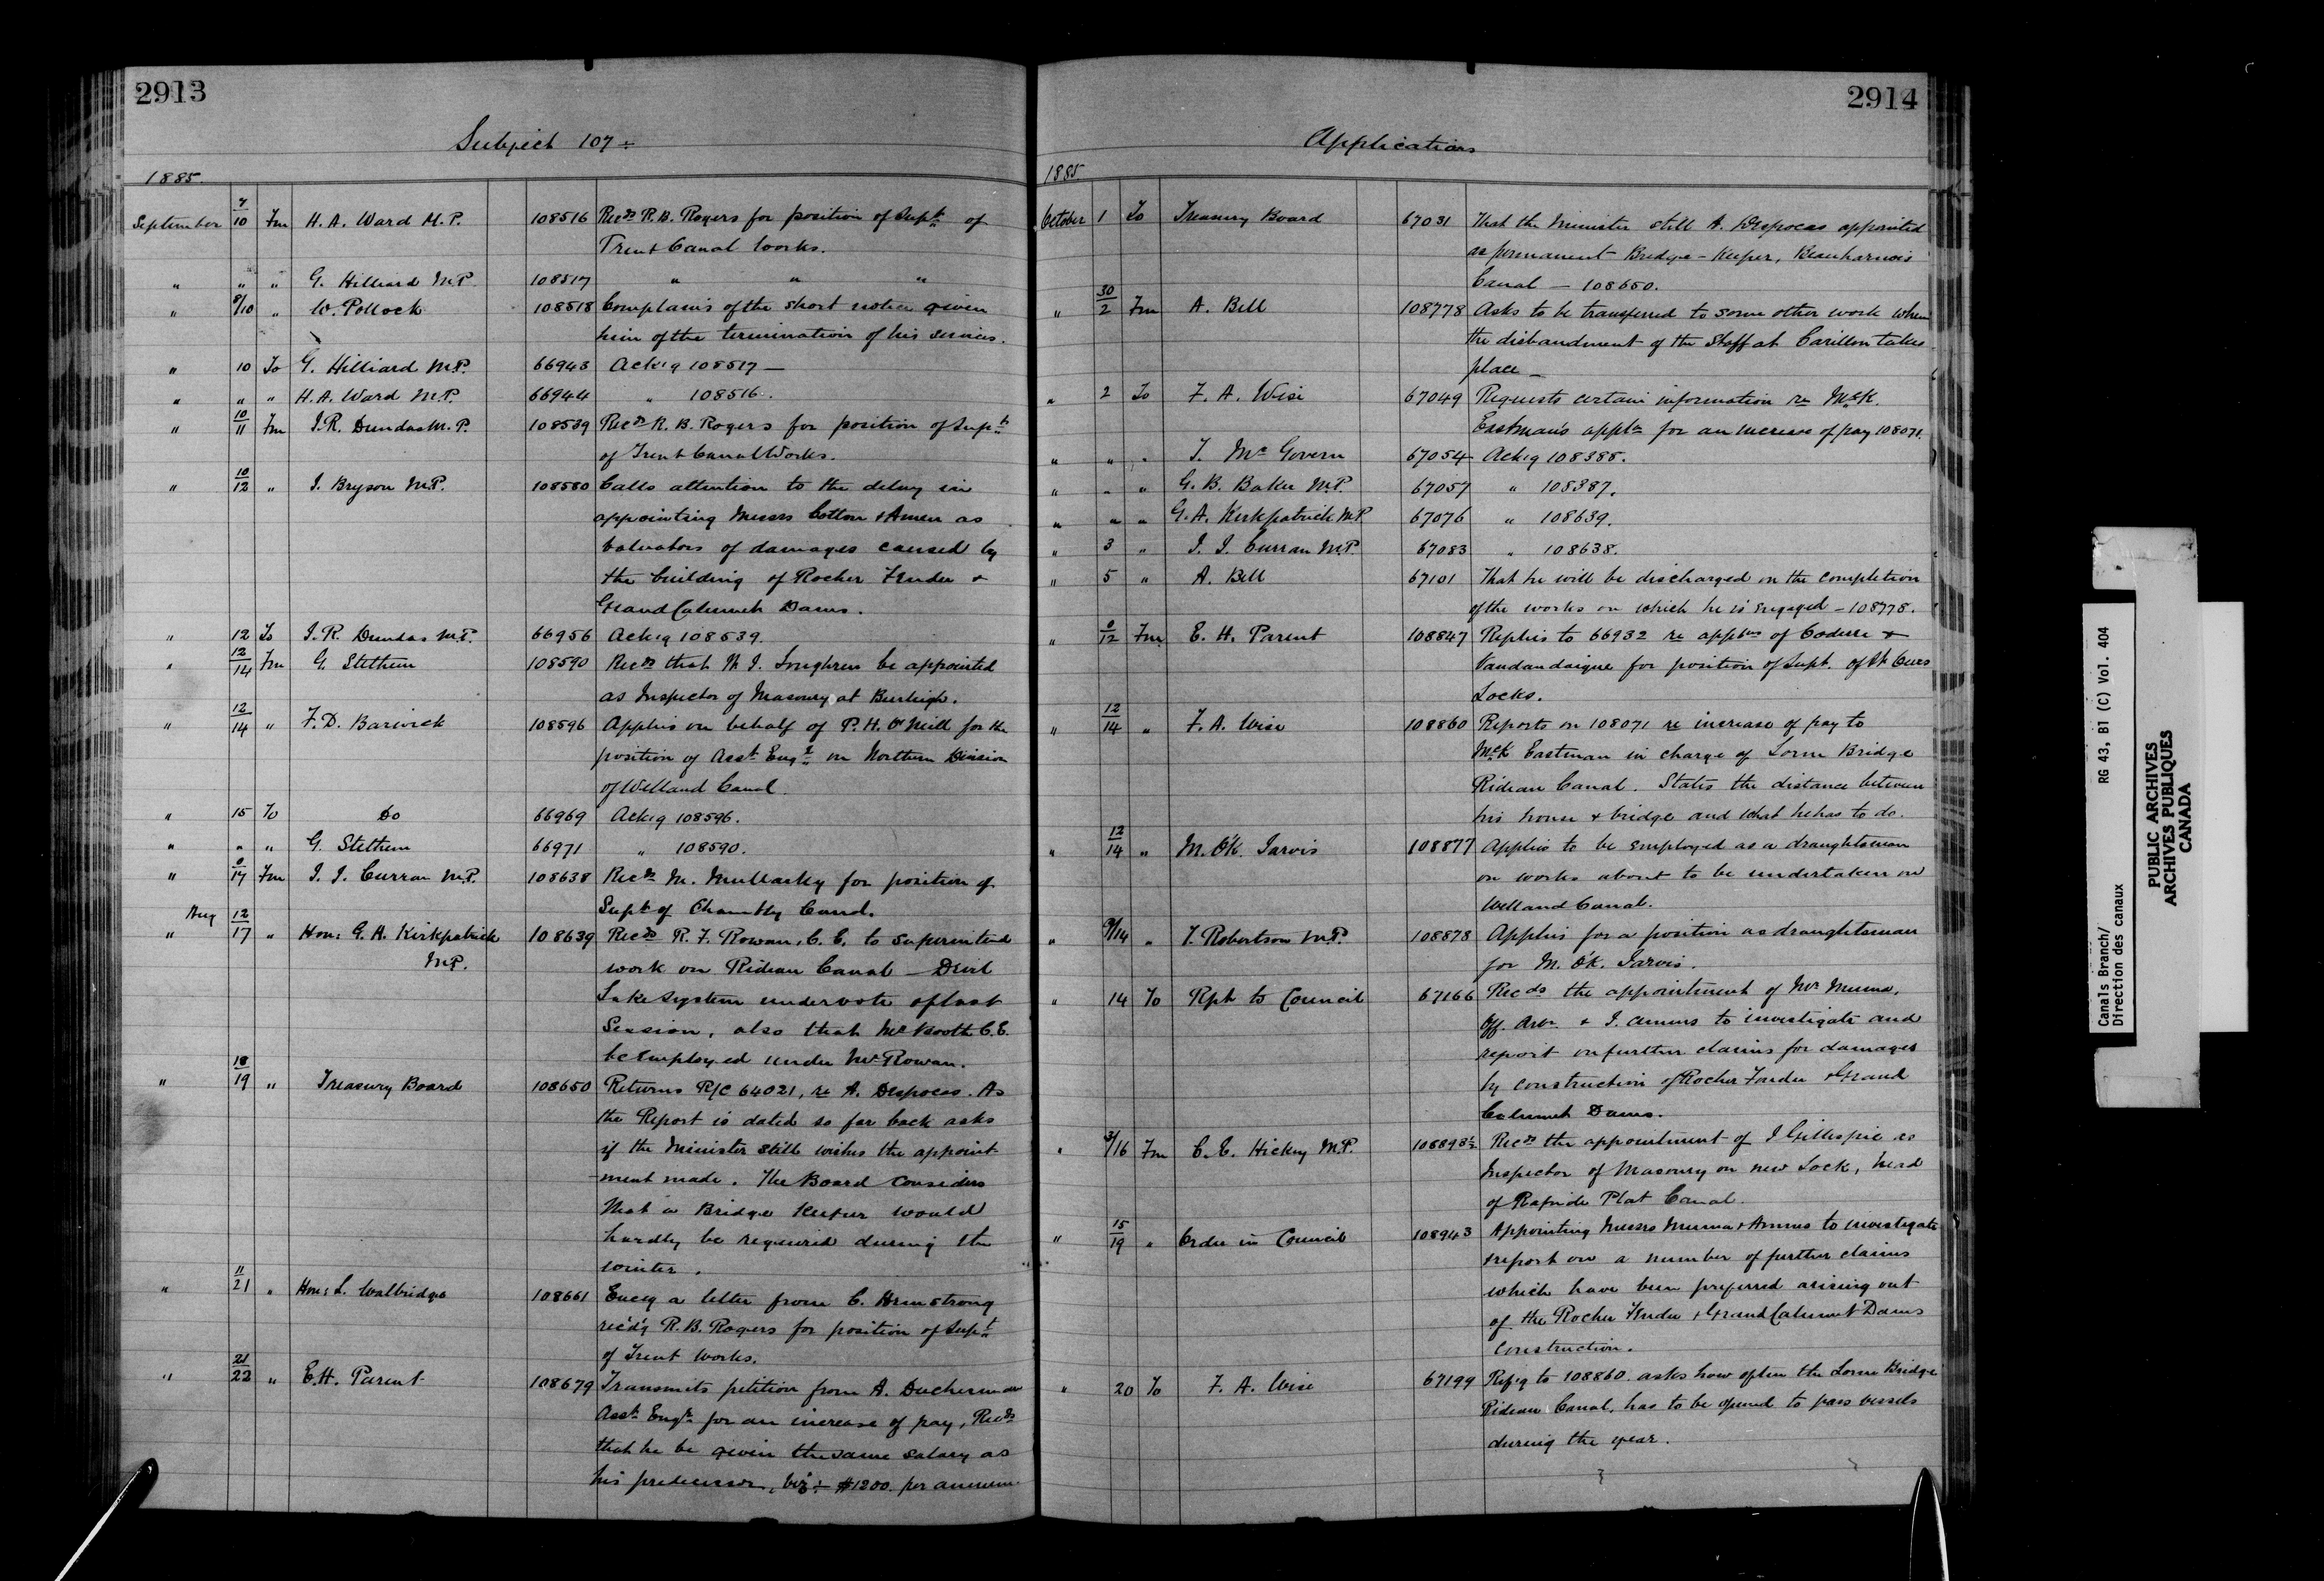 2913
Subject 107 ÷
1885.
September 7/10 Fm H. A. Ward M.P. 108516 Recds R. B. Rogers for position of Supt of
Trent Canal Works.
" " " G. Hilliard M.P. 108517 " " "
" 8/10 " W. Pollock 108518 Complains of the short notice given
him of the termination of his services.
" 10 To G. Hilliard M.P. 66943 Ack'g 108517 —
" " " H. A. Ward M.P. 66944 " 108516.
" 10/11 Fm J. R. Dundas M.P. 108539 Recds R. B. Rogers for position of Supt
of Trent Canal Works.
" 10/12 " J. Bryson M.P. 108580 Calls attention to the delay in
appointing Messrs Cotton & as
Valuators of damages caused by
the building of Rocher Fendu &
Grand Calumet Dams.
" 12 To J. R. Dundas M.P. 66956 Ack'g 108539.
" 12/14 Fm G. Stethem 108590 Recds that M. J. Loughren be appointed
as Inspector of Masonry at Burleigh.
" 12/14 " F. D. Barwick 108596 Applies on behalf of P. H. O'Neill for the
position of Asst Engr on Northern Division
of Welland Canal.
" 15 To Do 66969 Ack'g 108596.
" " " G. Stethem 66971 " 108590.
" 0/17 Fm J. J. Curran M.P. 108638 Recds M. Mullarky for position of
Supt of Chambly Canal.
Aug
" 12/17 " Hon: G. A. Kirkpatrick 108639 Recds R. F. Rowan, C. E. to superintend
M.P. work on Rideau Canal — Devil
Lake System under vote of last
Session, also that Mr Booth C. E.
be employed under Mr Rowan.
" 18/19 " Treasury Board 108650 Returns R/C 64021, re A. Despocas. As
the Report is dated so far back asks
if the Minister still wishes the appoint-
-ment made. The Board considers
that a Bridge Keeper would
hardly be required during the
winter.
" 11/21 " Hon: L. Walbridge 108661 Encg a letter from C. Armstrong
rec'd'g R. B. Rogers for position of Supt
of Trent Works.
" 21/22 " E. H. Parent 108679 Transmits petition from A.
Asst Engr for an increase of pay, Recds
that he be given the same salary as
his predecessor, viz ÷ $1200. per annum
2914
Applications
1885
October 1 To Treasury Board 67031 That the Minister still A. Despocas appointed
as permanent Bridge-Keeper, Beauharnois
Canal — 108650.
" 30/2 Fm A. Bell 108778 Asks to be transferred to some other work when
the disbandment of the Staff at Carillon takes
place —
" 2 To F. A. Wise 67049 Requests certain information re McK.
Eastman's appln for an increase of pay 108071.
" " " T. McGovern 67054 Ack'g 108388.
" " " G. B. Baker M.P. 67057 " 108387.
" " " G. A. Kirkpatrick M.P. 67076 " 108639.
" 3 " J. J. Curran M.P. 67083 " 108638.
" 5 " A. Bell 67101 That he will be discharged on the completion
of the works on which he is engaged — 108778.
" 0/12 Fm E. H. Parent 108847 Replies to 66932 re applns of Coderre &
Vandandaigue for position of Supt. of St Ours
Locks.
" 12/14 " F. A. Wise 108860 Reports on 108071 re increase of pay to
McK Eastman in charge of Lorne Bridge
Rideau Canal. States the distance between
his house & bridge and what he has to do.
" 12/14 " M. O'K. Jarvis 108877 Applies to be employed as a draughtsman
on works about to be undertaken on
Welland Canal.
" 9/14 " T. Robertson M.P. 108878 Applies for a position as draughtsman
for M. O'K. Jarvis.
" 14 To Rpt to Council 67166 Recds the appointment of Mr Muma,
Off. Arbr. & J. to investigate and
report on further claims for damages
by construction of Rocher Fendu & Grand
Calumet Dams.
" 3/16 Fm C. E. Hickey M.P. 108893½ Recds the appointment of J Gillespie as
Inspector of Masonry on new Lock, head
of Rapide Plat Canal.
" 15/19 " Order in Council 108943 Appointing Messrs Muma & to investigate
& report on a number of further claims
which have been preferred arising out
of the Rocher Fendu & Grand Calumet Dams
Construction.
" 20 To F. A. Wise 67199 Ref'g to 108860. asks how often the Lorne Bridge
Rideau Canal, has to be opened to pass vessels
during the year.
Canals Branch/
Direction des canaux
RG 43, B1 (C) Vol. 404
PUBLIC ARCHIVES
ARCHIVES PUBLIQUES
CANADA